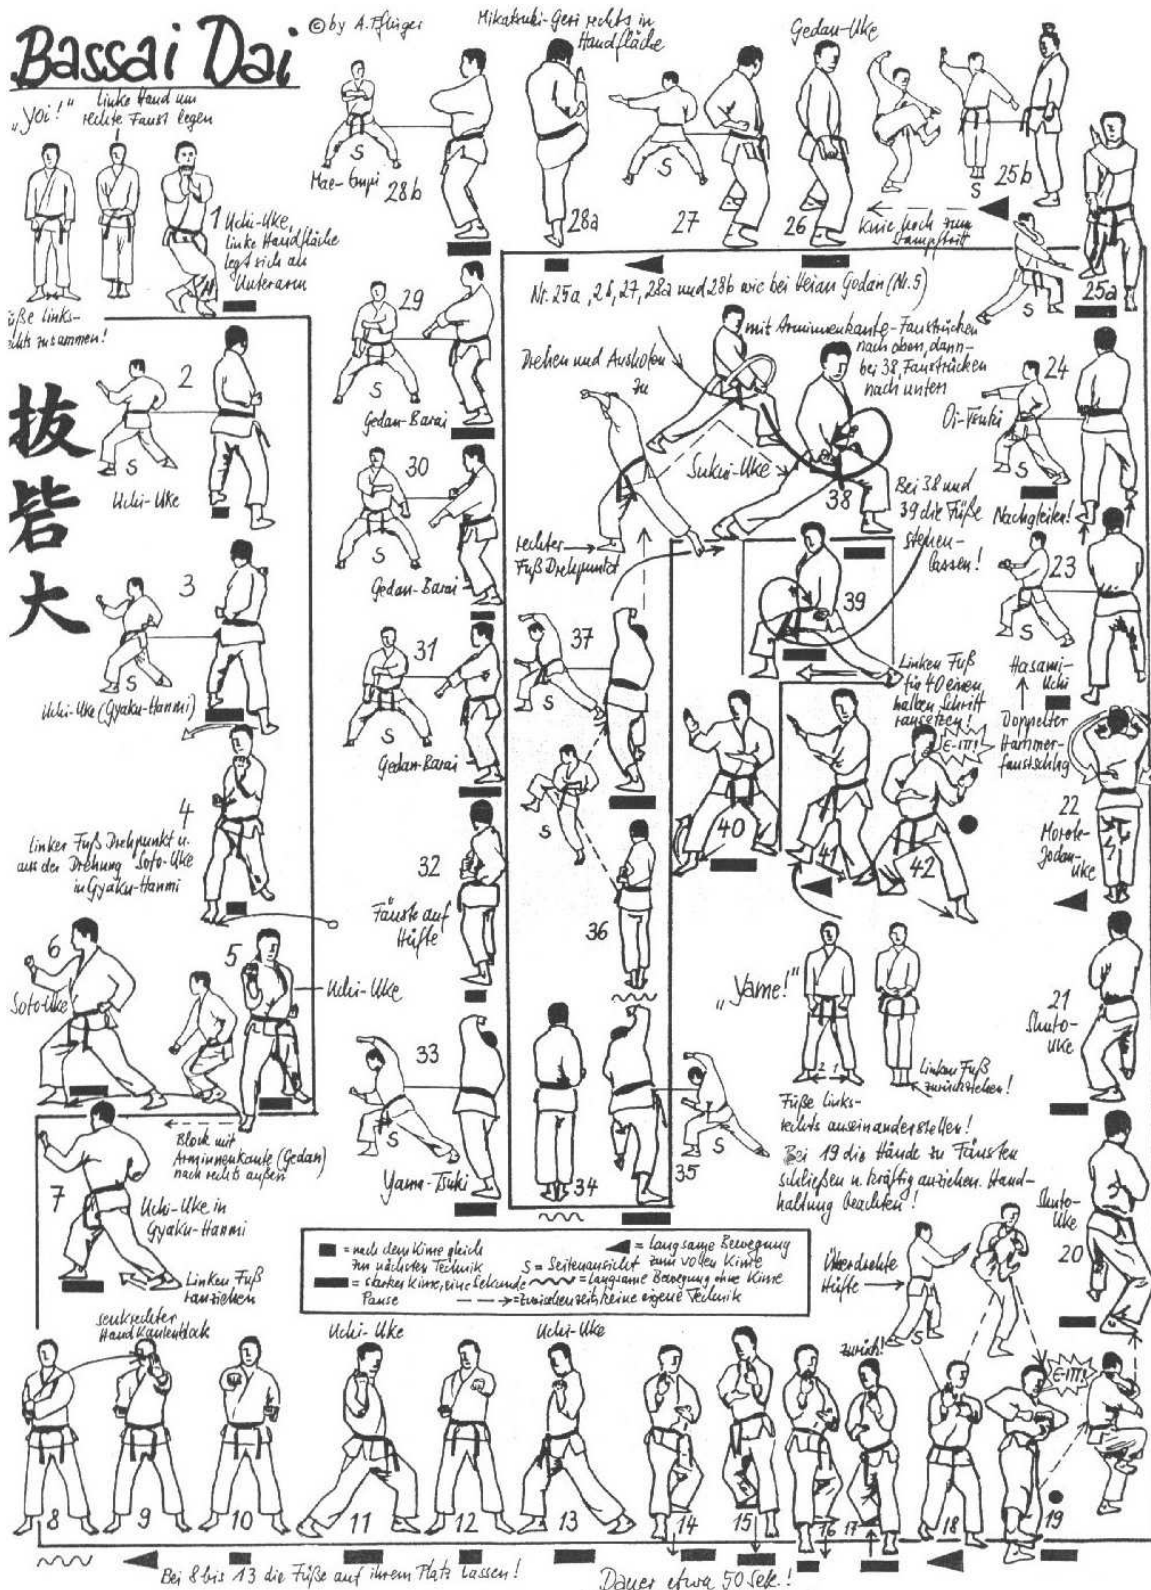 Bassai Dai
© by A. Pflüger
„Yoi!"
linke Hand um
rechte Faust legen
1 Uchi-Uke,
linke Handfläche
legt sich an
Unterarm
Füße links-
rechts zusammen!
抜
砦
大
2
S
Uchi-Uke
3
S
Uchi-Uke (Gyaku-Hanmi)
4
linker Fuß Drehpunkt u.
aus der Drehung Soto-Uke
in Gyaku-Hanmi
5
Uchi-Uke
6
Soto-Uke
Block mit
Arminnenkante (Gedan)
nach rechts außen
7
Uchi-Uke in
Gyaku-Hanmi
Linken Fuß
ranziehen
senkrechter
Handkantenblock
8
9
10
Uchi-Uke
11
12
Uchi-Uke
13
14
15
16
zurück!
17
18
E-ITT!
19
Bei 8 bis 13 die Füße auf ihrem Platz lassen!
Dauer etwa 50 Sek.!
Überdrehte
Hüfte
S
Shuto-
Uke
20
21
Shuto-
Uke
22
Morote-
Jodan-
Uke
23
S
Hasami-
Uchi
Doppelter
Hammer-
faustschlag
24
Oi-Tsuki
S
Nachgleiten!
25a
S
25b
S
Knie hoch zum
Stampftritt
Gedan-Uke
26
27
S
Mikatsuki-Geri rechts in
Handfläche
28a
S
Mae-Empi
28b
Nr. 25a, 26, 27, 28a und 28b wie bei Heian Godan (Nr. 5)
29
S
Gedan-Barai
30
S
Gedan-Barai
31
S
Gedan-Barai
32
Fäuste auf
Hüfte
33
S
Yama-Tsuki
34
35
S
36
S
37
S
Drehen und Ausholen
zu
rechter
Fuß Drehpunkt
Sukui-Uke
38
mit Arminnenkante-Faustrücken
nach oben, dann
bei 38, Faustrücken
nach unten
Bei 38 und
39 die Füße
stehen-
lassen!
39
Linken Fuß
für 40 einen
halben Schritt
ransetzen!
40
41
E-ITT!
42
„Yame!"
2 1
Linken Fuß
zurückziehen!
Füße links-
rechts auseinanderstellen!
Bei 19 die Hände zu Fäusten
schließen u. kräftig anziehen. Hand-
haltung beachten!
= nach dem Kime gleich
zur nächsten Technik
= starkes Kime, eine Sekunde
Pause
= langsame Bewegung
zum vollen Kime
S = Seitenansicht
= langsame Bewegung ohne Kime
= Zwischenzeit, keine eigene Technik